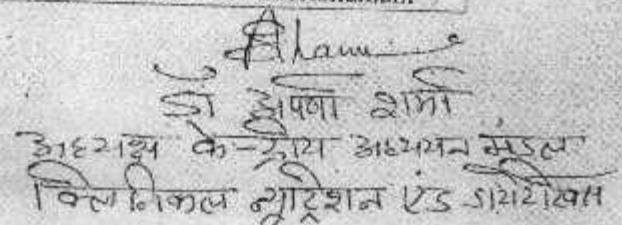 डॉ अर्पणा शर्मा
अध्यक्ष केन्द्रीय अध्ययन मंडल
क्लिनिकल न्यूट्रिशन एंड डायटेटिक्स